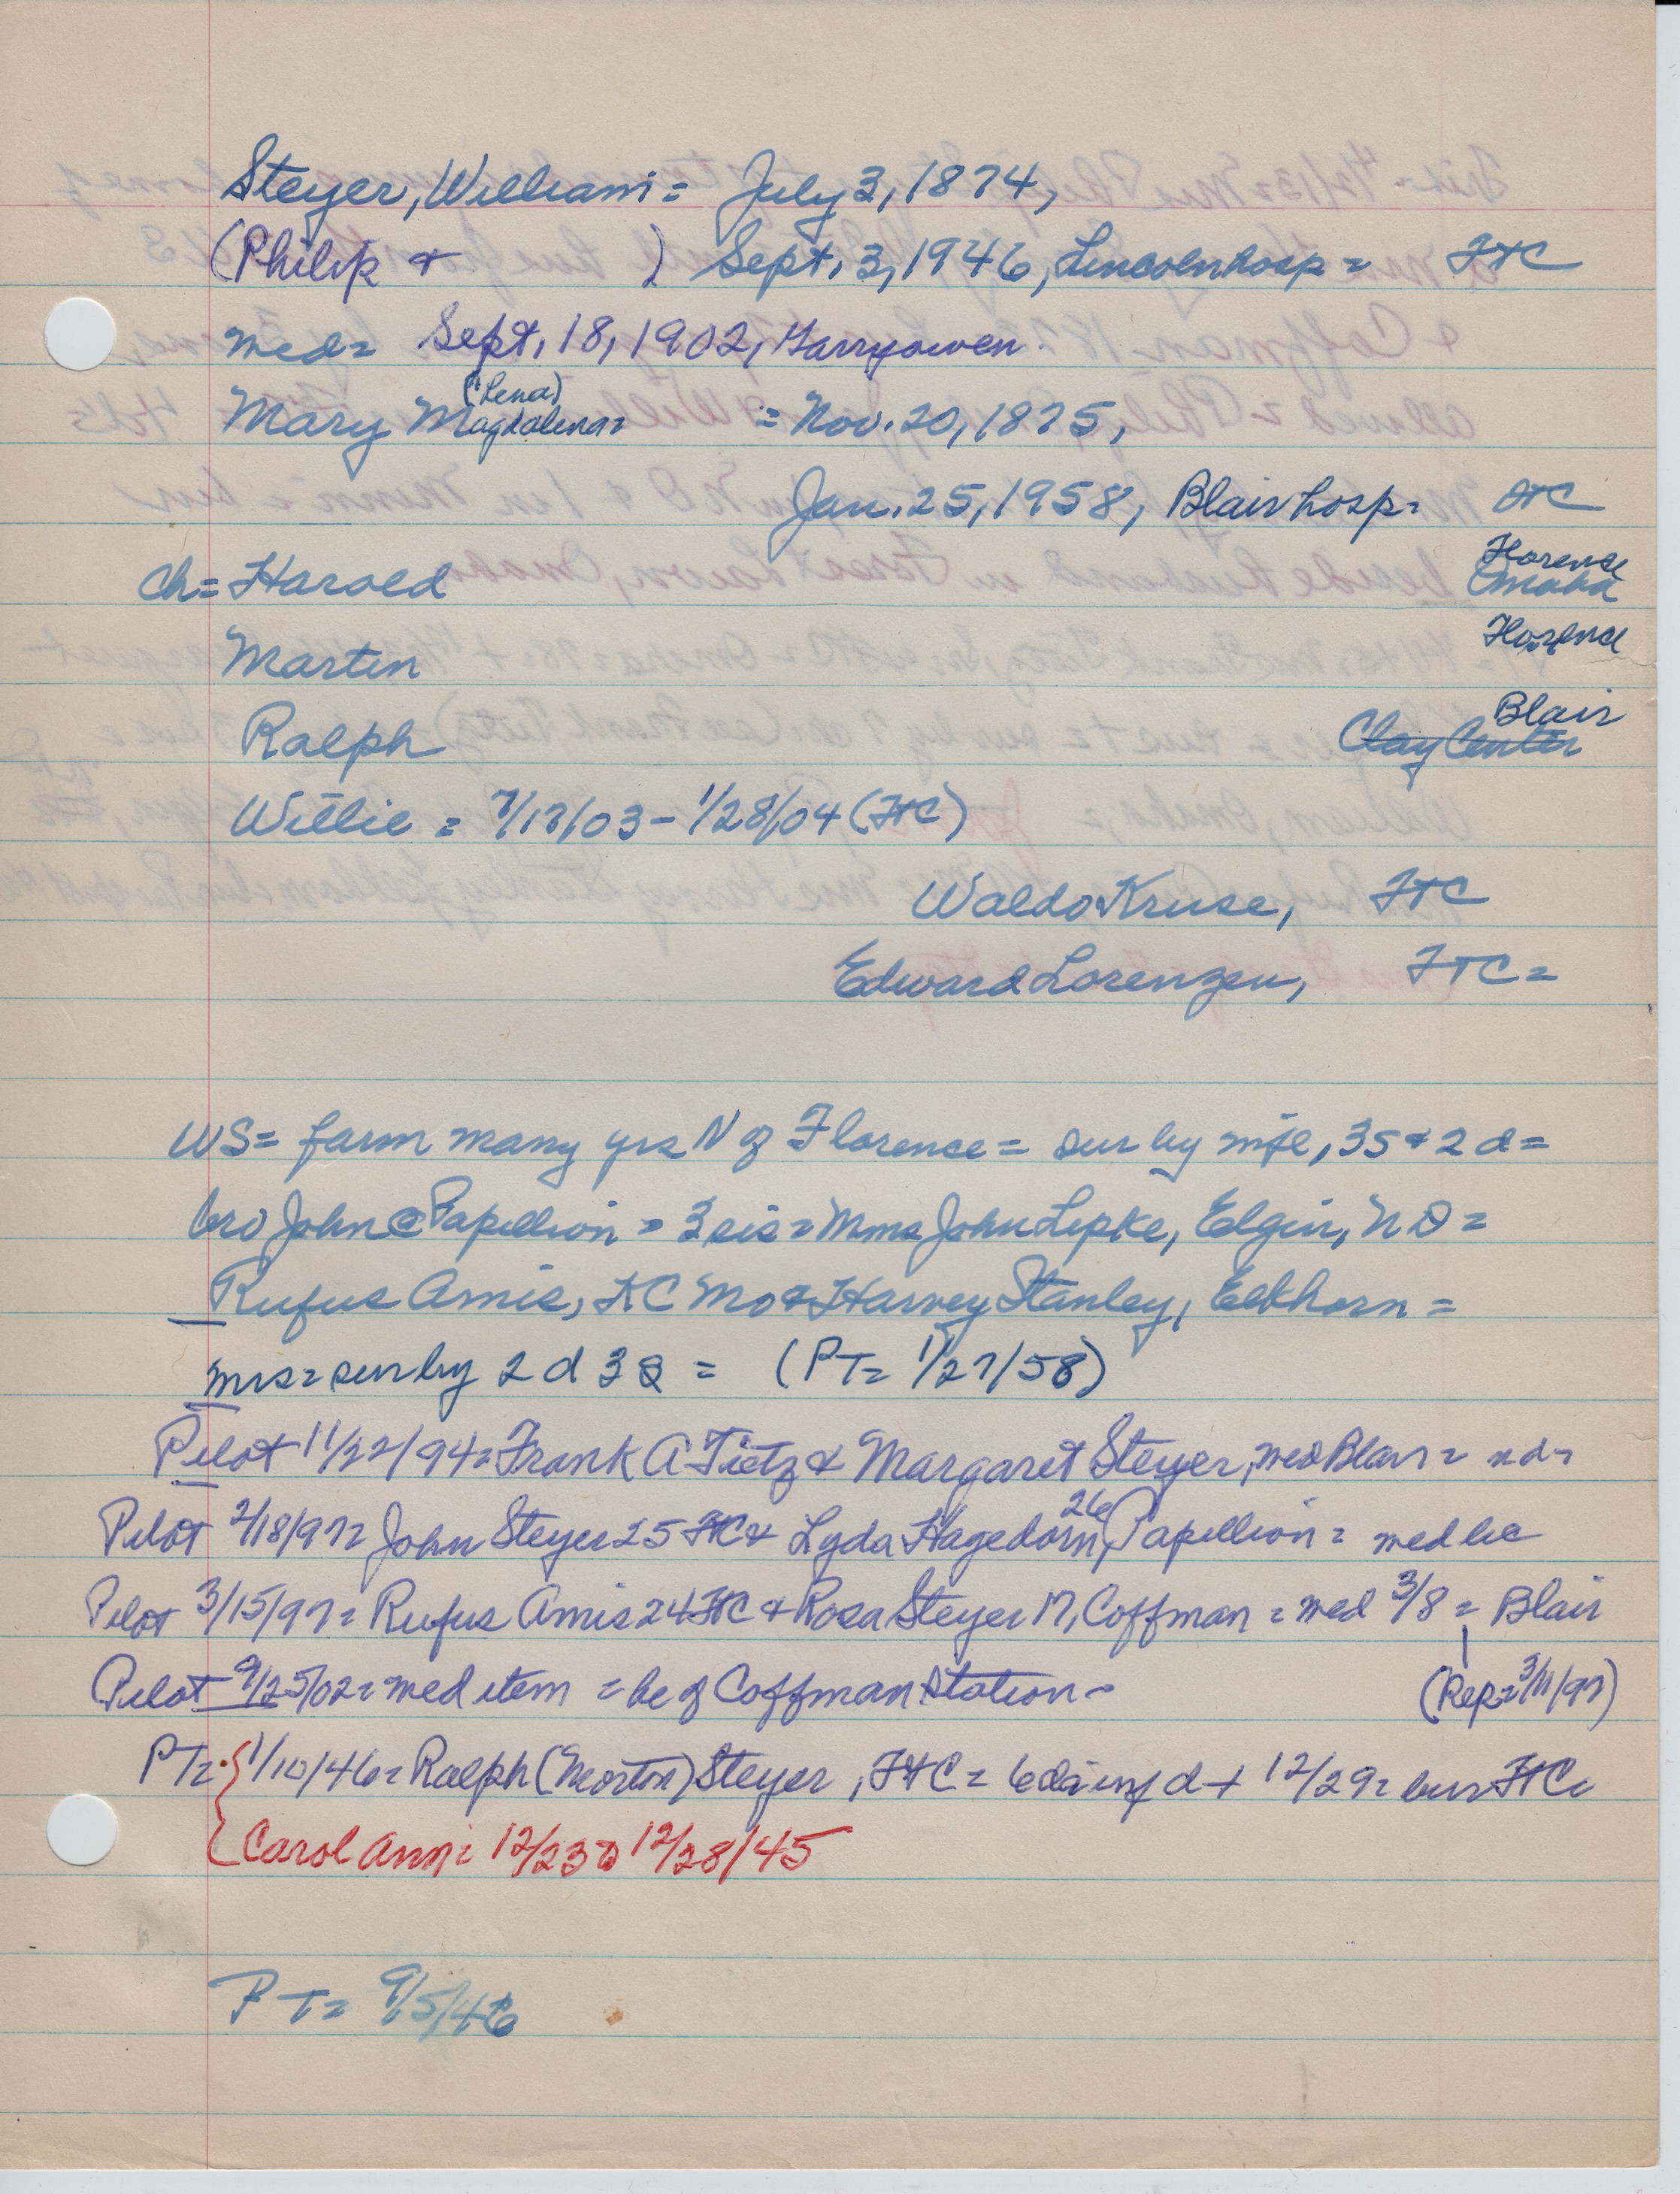 Steyer, William = July 3, 1874,
(Philip & ) Sept. 3, 1946, Lincoln hosp = FtC
med = Sept. 18, 1902, Garryowen.
(Lena)
Mary Magdalena = = Nov. 20, 1875,
Jan. 25, 1958, Blair hosp = FtC
Florence
ch = Harold Omaha
Martin Florence
Blair
Ralph Clay Center
Willie = 7/17/03 - 1/28/04 (FtC)
Waldo Kruse, FTC
Edward Lorenzen, FTC =
WS = farm many yrs N of Florence = sur by wife, 3S & 2d =
bro John @ Papillion = 3 sis = Mmes John Lepke, Elgin, ND =
Rufus Amis, KC Mo & Harvey Stanley, Elkhorn =
mrs = sur by 2 d 3 S = (PT = 1/27/58)
Pilot 11/22/94 = Frank A Tietz & Margaret Steyer, med Blair = nd =
26
Pilot 2/18/97 = John Steyer 25 FtC & Lyda Hagedorn, Papillion = med lic
Pilot 3/15/97 = Rufus Amis 24 FtC & Rosa Steyer 17, Coffman = med 3/8 = Blair
Pilot 9/25/02 = med item = he of Coffman Station = (Rep = 3/11/97)
PT = 1/10/46 = Ralph (Morton) Steyer, FtC = 6 da inf d + 12/29 = bur FtC
Carol Ann = 12/23 12/28/45
PT = 9/5/46